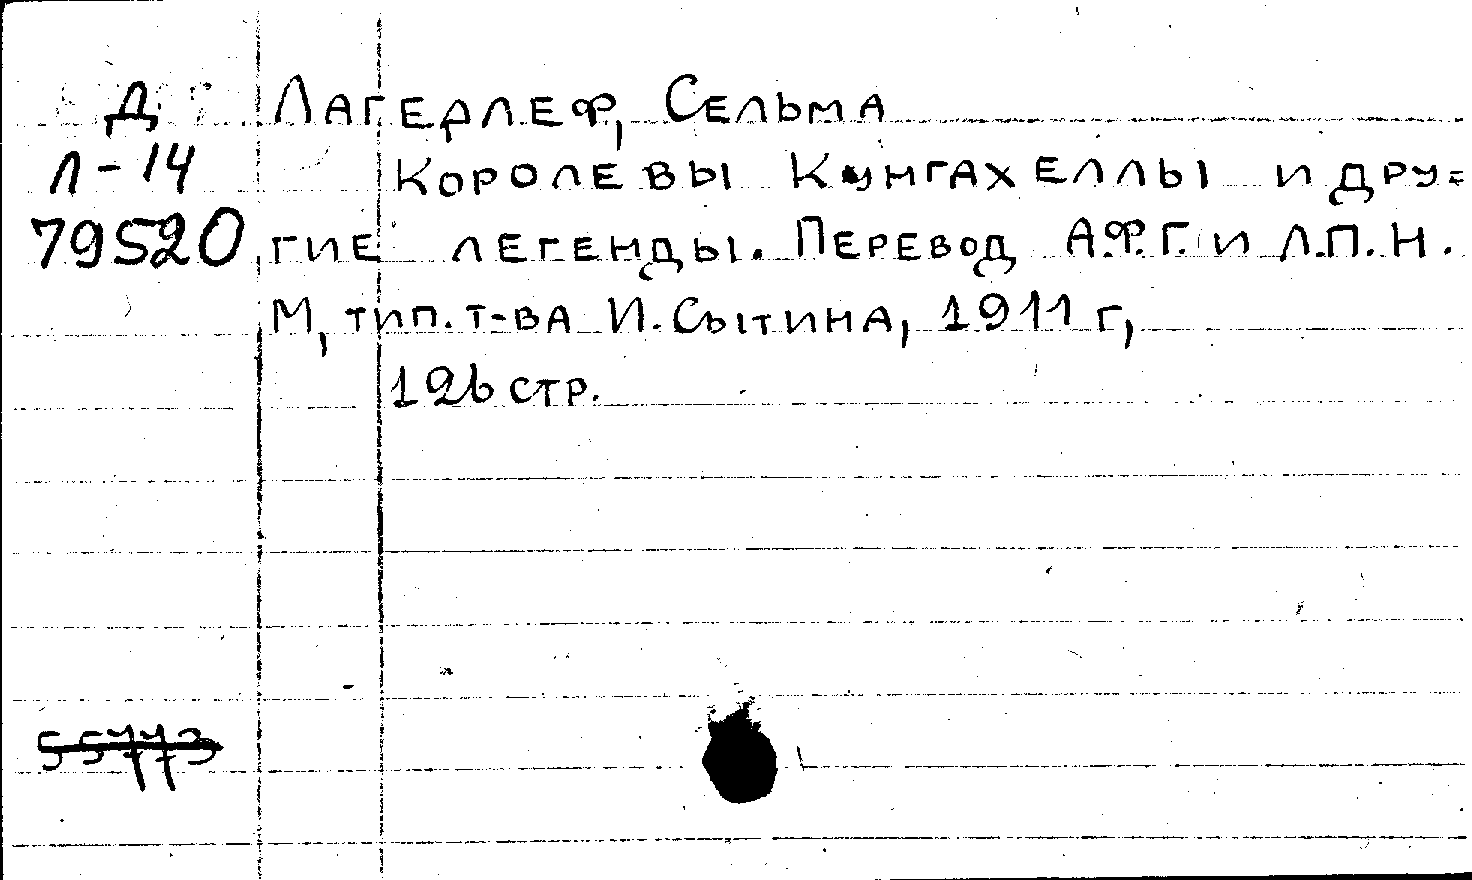 Д Лагерлеф, Сельма
Л-14 Королевы Кунгахеллы и дру=
79520 гие легенды. Перевод А.Ф.Г. и Л.П.Н.
М, тип. т-ва И. Сытина, 1911 г,
126 стр.
55773